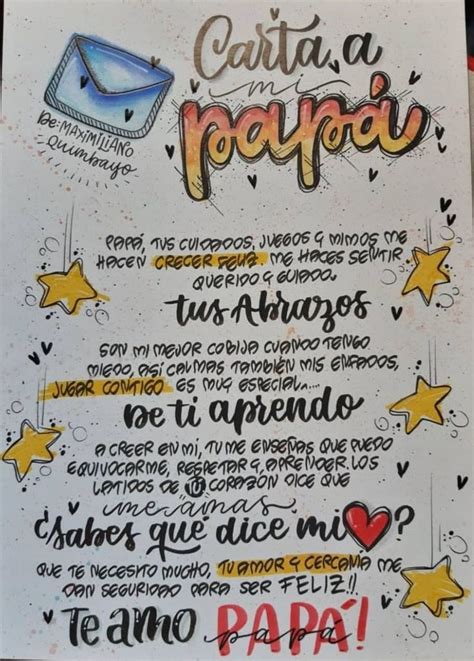 Carta a
mi
papá
De: MAXIMILIANO
Quimbayo
PAPÁ, TUS CUIDADOS, JUEGOS Y MIMOS ME
HACEN CRECER FELIZ. ME HACES SENTIR
QUERIDO Y GUIADO.
tus Abrazos
SON MI MEJOR COBIJA CUANDO TENGO
MIEDO, ASÍ CALMAS TAMBIÉN MIS ENFADOS,
JUGAR CONTIGO ES MUY ESPECIAL....
De ti aprendo
A CREER EN MI, TU ME ENSEÑAS QUE PUEDO
EQUIVOCARME, RESPETAR Y APRENDER. LOS
LATIDOS DE TU CORAZÓN DICE QUE
me amas
¿Sabes que dice mi ?
QUE TE NECESITO MUCHO, TU AMOR Y CERCANÍA ME
DAN SEGURIDAD PARA SER FELIZ!!
Te amo PAPÁ!
papá